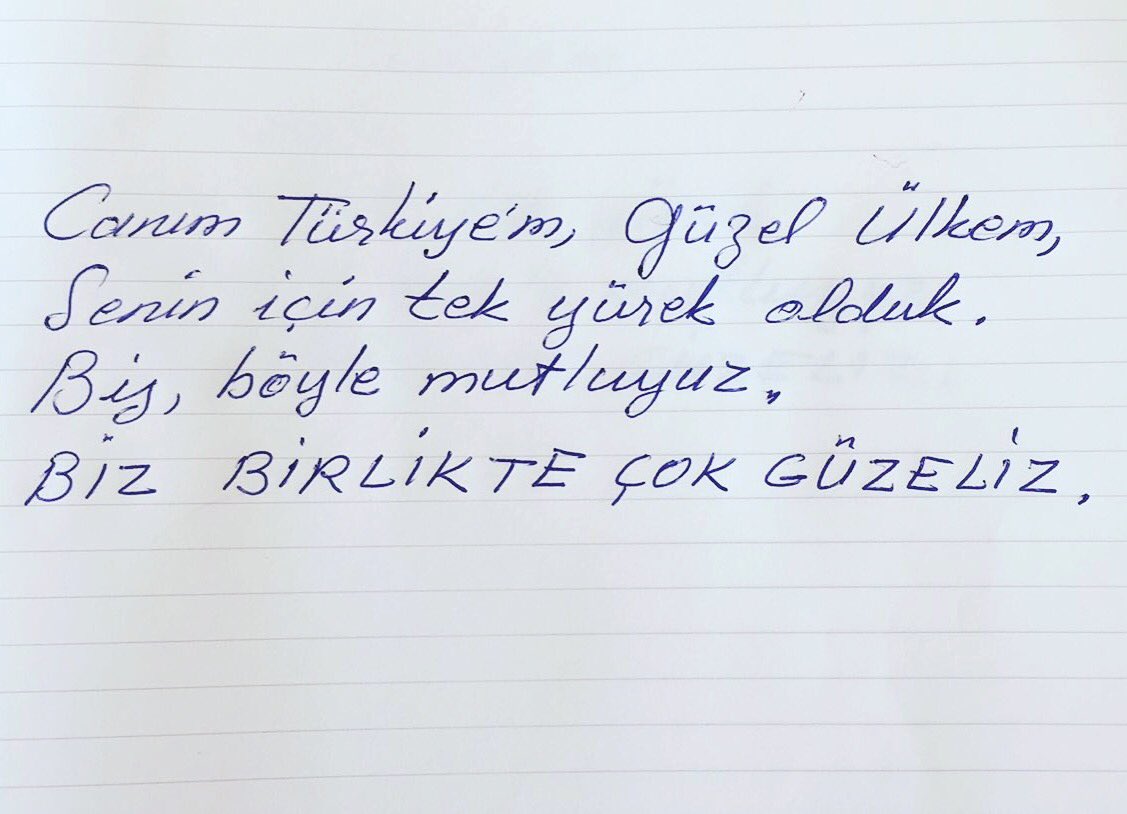 Canım Türkiye'm, Güzel Ülkem,
Senin için tek yürek olduk.
Biz, böyle mutluyuz.
BİZ BİRLİKTE ÇOK GÜZELİZ.